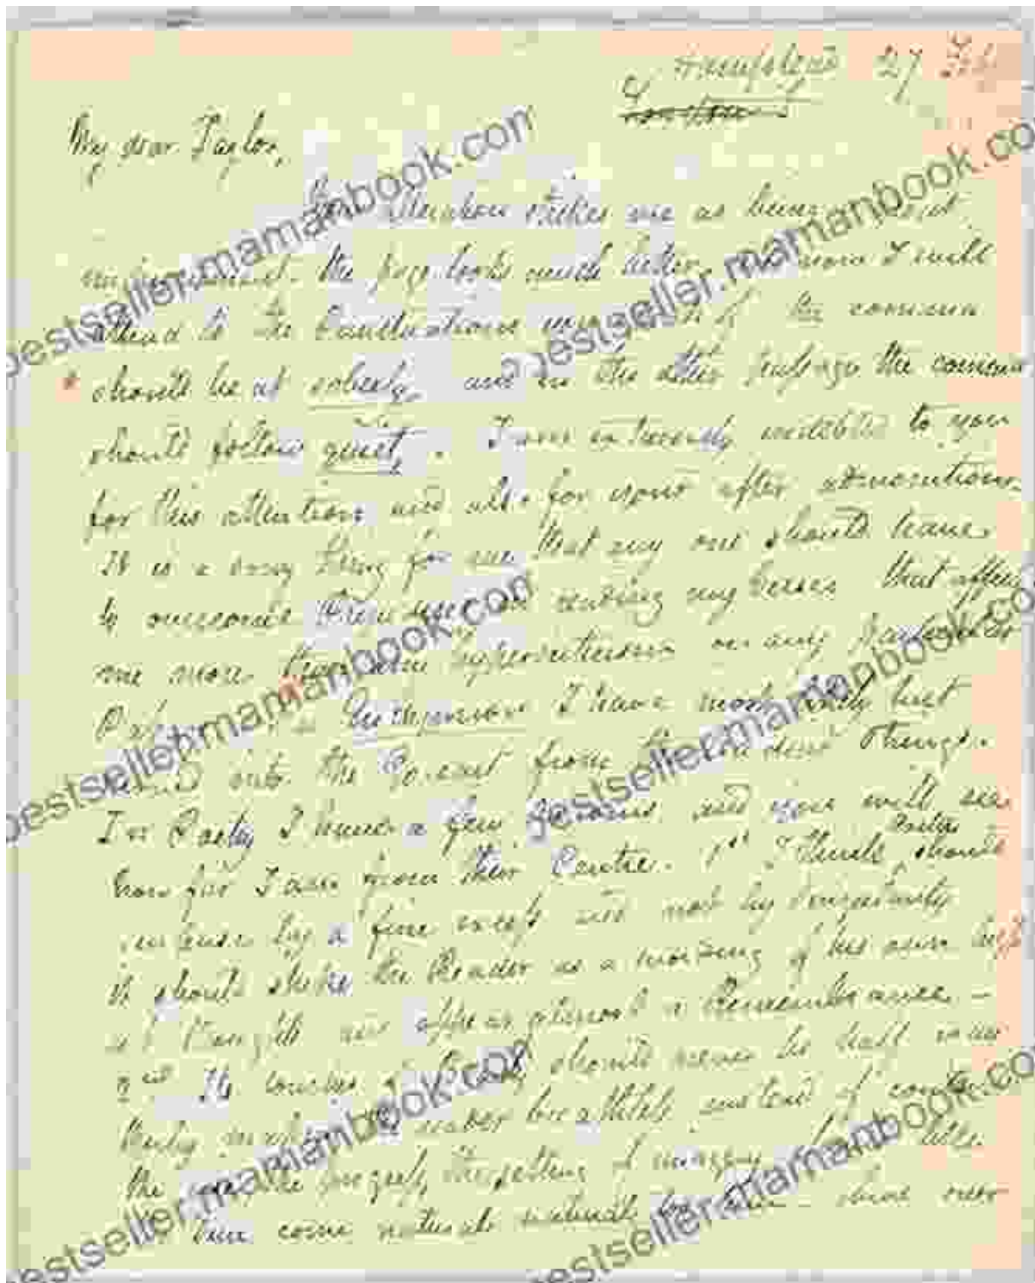 Hampstead 27 Feby
London
My dear Taylor,
Your alteration strikes me as being a great
improvement. the page looks much better. And now I will
attend to the Punctuations you speak of the comma
should be at soberly, and in the other passage the comma
should follow quiet, . I am extremely indebted to you
for this attention and also for your after admonitions.
It is a sorry thing for me that any one should have
to overcome Prejudices in reading my Verses that affects
me more than any hypercriticism on any particular
In Endymion I have most likely but
moved into the Go-cart from the leading strings.
In Poetry I have a few Axioms, and you will see
how far I am from their Centre. 1st I think Poetry should
surprise by a fine excess and not by Singularity
it should strike the Reader as a wording of his own high
est thoughts and appear almost a Remembrance—
2nd Its touches of Beauty should never be half way
therby making the reader breathless instead of content
the rise, the progress, the setting of imagery should like
the Sun come natural natural too him— shine over
bestseller.mamanbook.com
bestseller.mamanbook.com
bestseller.mamanbook.com
bestseller.mamanbook.com
bestseller.mamanbook.com
bestseller.mamanbook.com